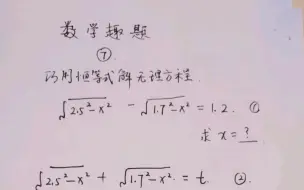 数学趣题
⑦
巧用恒等式解无理方程.
√2.5²-x² - √1.7²-x² = 1.2. ①
求 x = ?
√2.5²-x² + √1.7²-x². = t. ②.